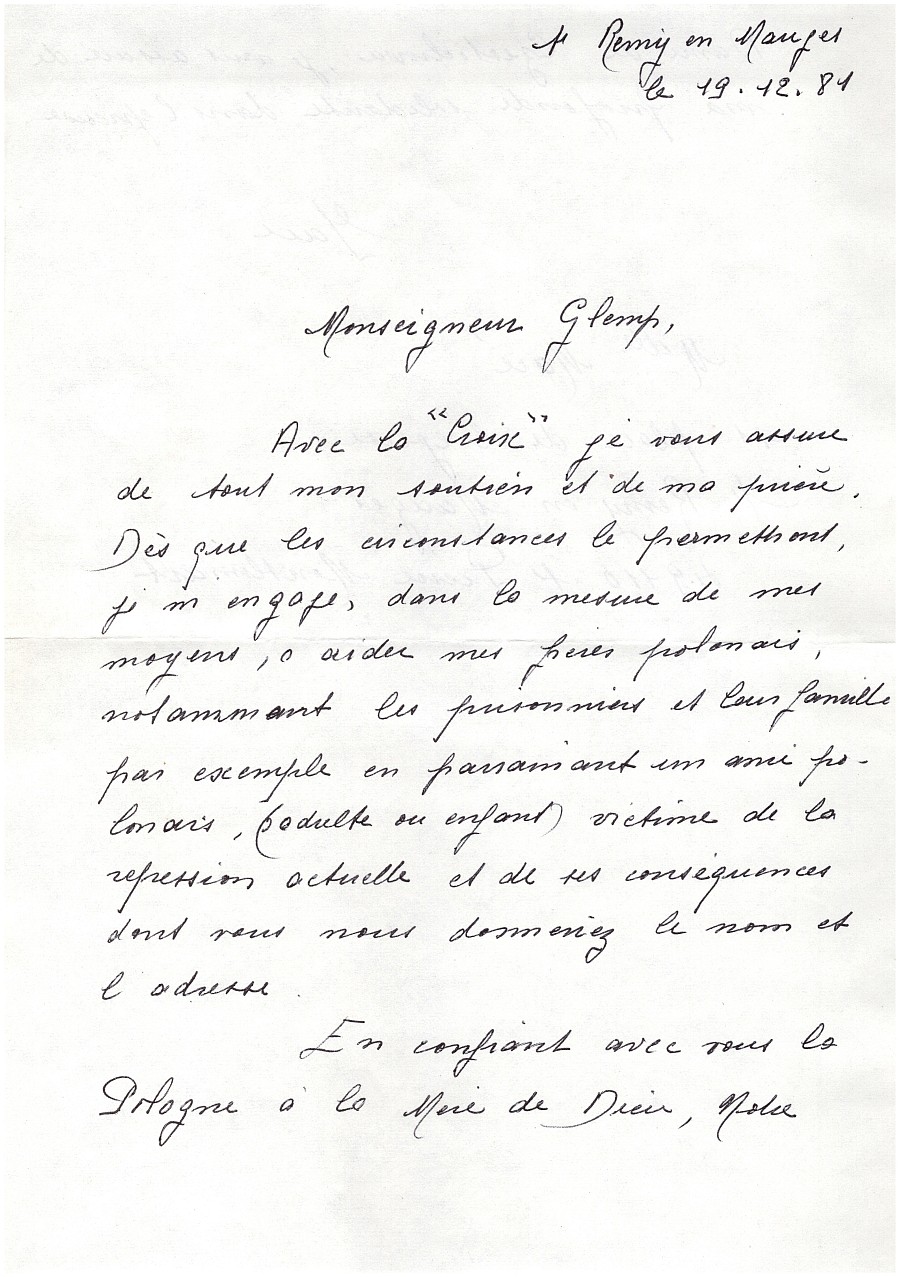 St Remy en Mauges
le 19.12.81
Monseigneur Glemp,
Avec la "Croix" je vous assure
de tout mon soutien et de ma prière.
Dès que les circonstances le permettront,
je m engage, dans la mesure de mes
moyens, à aider mes frères polonais,
notamment les prisonniers et leur famille
par exemple en parrainant un ami po-
lonais, (adulte ou enfant) victime de la
repression actuelle et de ses conséquences
dont vous nous donneriez le nom et
l adresse.
En confiant avec vous la
Pologne à la Mère de Dieu, Notre